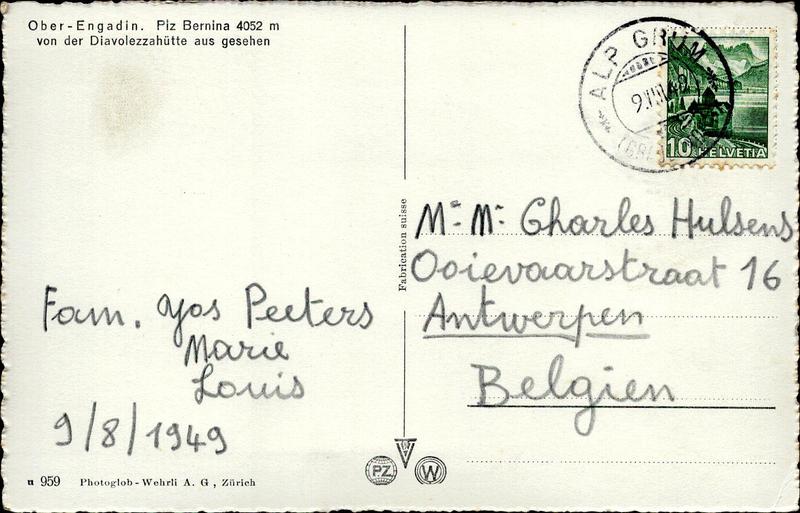 Ober-Engadin. Piz Bernina 4052 m
von der Diavolezzahütte aus gesehen
ALP GRÜM
10 HELVETIA
Fabrication suisse
Mr Mr Charles Hulsens
Ooievaarstraat 16
Antwerpen
Belgien
Fam. Yos Peeters
Marie
Louis
9/8/1949
n 959 Photoglob-Wehrli A. G , Zürich
PZ
W